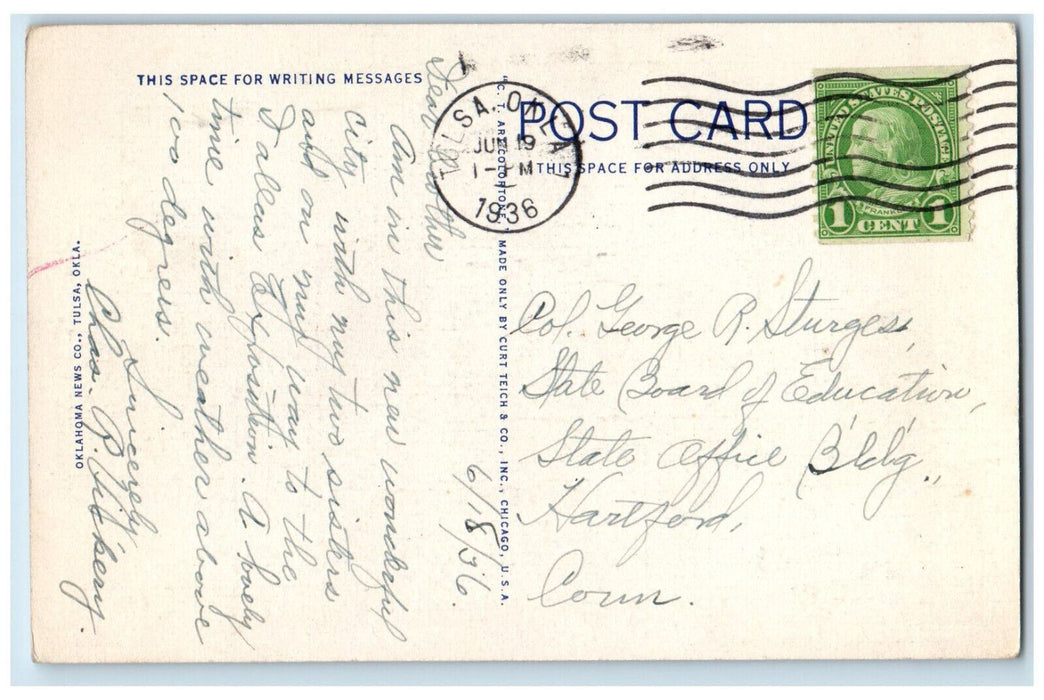 THIS SPACE FOR WRITING MESSAGES
POST CARD
THIS SPACE FOR ADDRESS ONLY
TULSA, OKLA
JUN 19
1936
UNITED STATES POSTAGE
FRANKLIN
1 CENT 1
6/18/36.
Dear Brother
Am in this new wonderful
city with my two sisters
and on my way to the
Dallas Exposition. A lovely
time with weather above
100 degrees.
Sincerely,
Chas. R.
Col. George R. Sturges,
State Board of Education,
State Office B'ld'g.,
Hartford,
Conn.
"C. T. ART-COLORTONE" MADE ONLY BY CURT TEICH & CO., INC., CHICAGO, U.S.A.
OKLAHOMA NEWS CO., TULSA, OKLA.